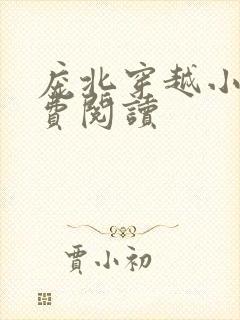 庶北穿越小
費閱讀
賈小初